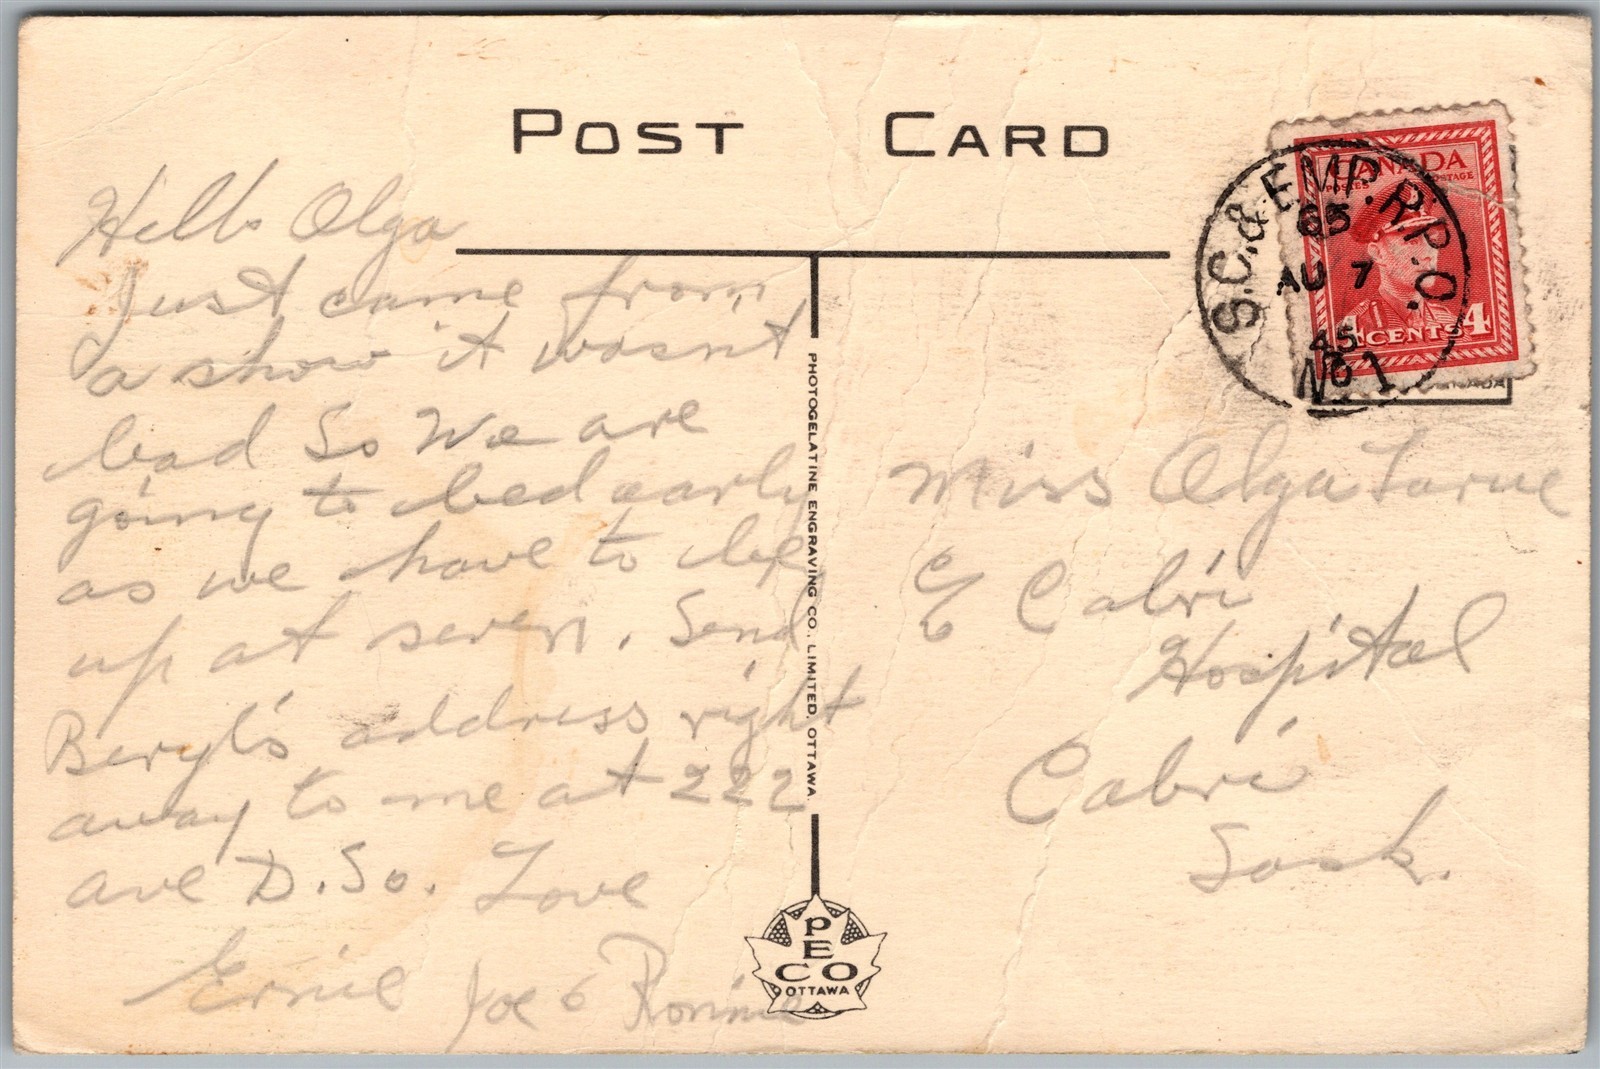 POST CARD
Hello Olga
Just came from
a show it wasn't
bad So We are
going to bed early
as we have to be
up at seven. Send
Beryl's address right
away to me at 222
ave D. So. Love
Ernie Joe & Ronnie
PHOTOGELATINE ENGRAVING CO., LIMITED, OTTAWA.
PECO
OTTAWA
CANADA
POSTES POSTAGE
4 CENTS 4
S.C. & EMP. R.P.O.
AU 7
45
NO 1
CANADA
Miss Olga
c/o Cabri
Hospital
Cabri
Sask.